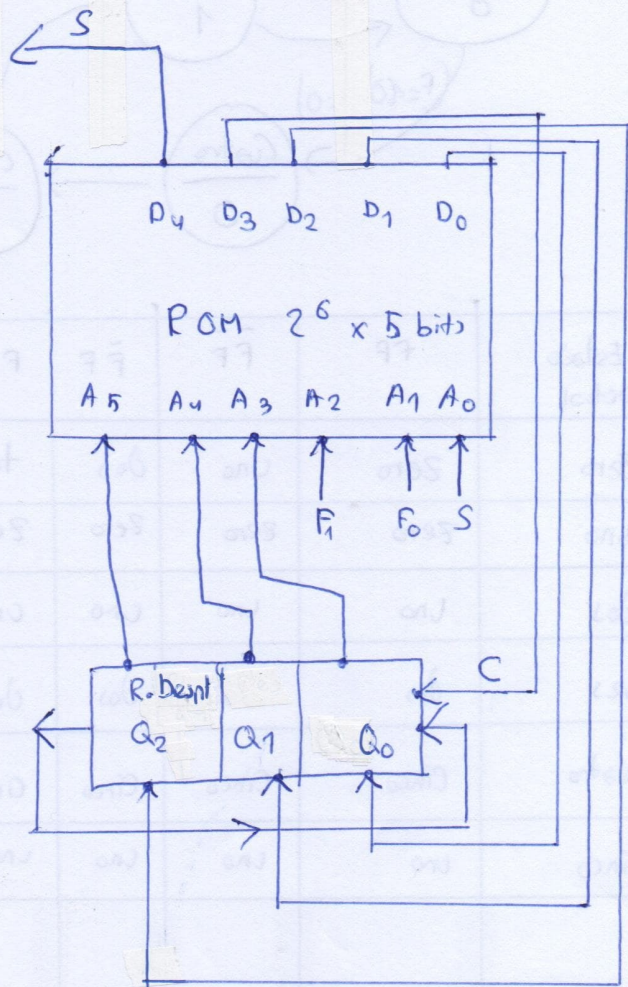 S
D4 D3 D2 D1 D0
ROM 2^6 x 5 bits
A5 A4 A3 A2 A1 A0
F1 F0 S
C
Q2 Q1 Q0